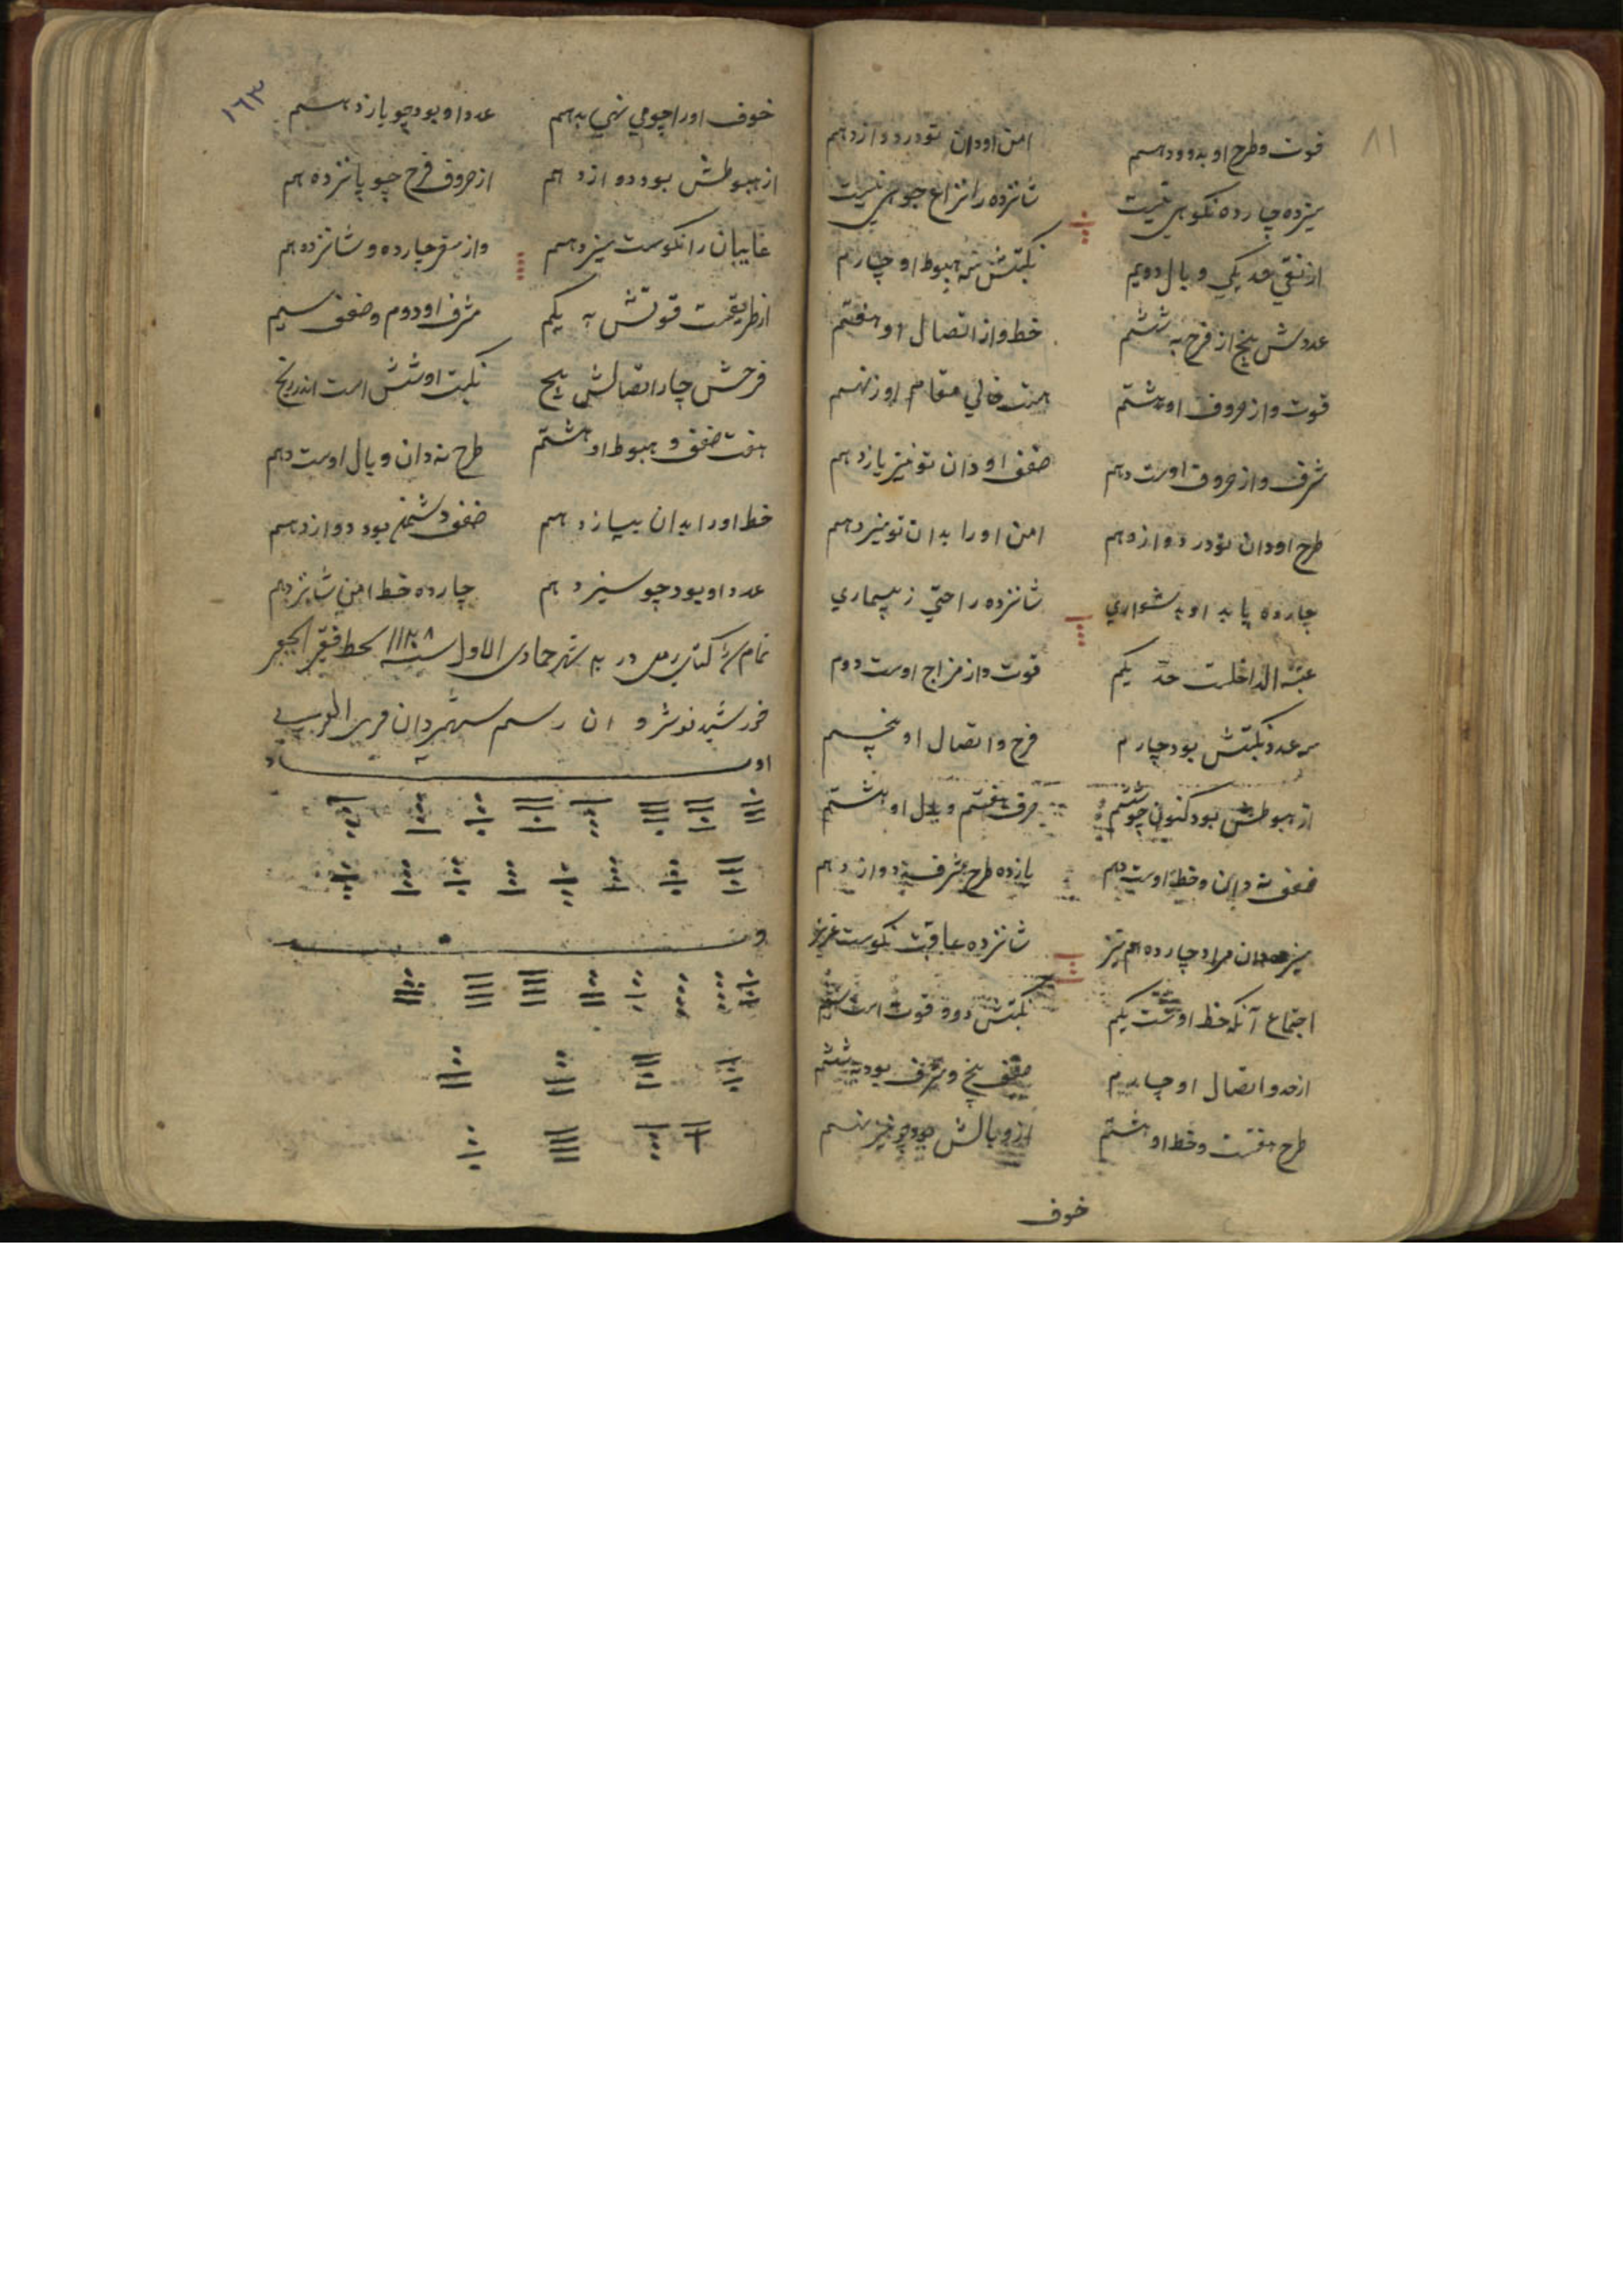 ۸۱
قوت و طرح او بدو و دهم امن او دان تو در دوازدهم
سیزده چارده نکوهی نیست شانزده را نزاع جوهی نیست
از نقی حد یکی وبال دویم نکبتش سه هبوط او چارم
عددش پنج از فرح به ششم خط و از اتصال او هفتم
قوت و از حروف او هشتم هست خالی مقام او ز نهم
شرف و از حروف اوست دهم ضعف او دان تو نیز یازدهم
طرح او دان تو در دوازدهم امن او را بدان تو سیزدهم
چارده یابد او بدشواری شانزده راحتی ز بیماری
عتبة الداخلست حد یکم قوت و از مزاج اوست دوم
سه عدد نکبتش بود چارم فرح و اتصال او پنجم
از هبوطش بود کنون چو ششم حرف هفتم وبال او هشتم
ضعف نه دان و خط اوست دهم یازده طرح شرف دوازدهم
سیزده دان مراد چارده هم نیز شانزده عاقبت نکوست عزیز
اجتماع آنکه خط اوست یکم نکبتش دو و قوت است سیم
از حد و اتصال او چارم ضعف پنج و شرف بود به ششم
طرح هفتست و خط او هشتم از وبالش بود چو نیز نهم
خوف
۱۶۳
خوف او را چو می نهی بدهم عدد او بود چو یازدهم
از هبوطش بود دوازدهم از حروف فرح چو پانزدهم
غایبان را نکوست سیزدهم واز سفر چارده و شانزدهم
از طریقست قوتش به یکم شرف او دوم و ضعف سیم
فرحش چار اتصالش پنج نکبت او شش است اندر رنج
هفت ضعف و هبوط او هشتم طرح نه دان وبال اوست دهم
خط او را بدان بیازدهم ضعف دشمن بود دوازدهم
عدد او بود چو سیزدهم چارده خط امن شانزدهم
تمام شد کتاب رمل در شهر جمادی الاول سنه ۱۱۲۸ بخط فقیر الحقیر
خورشید نوشروان رستم